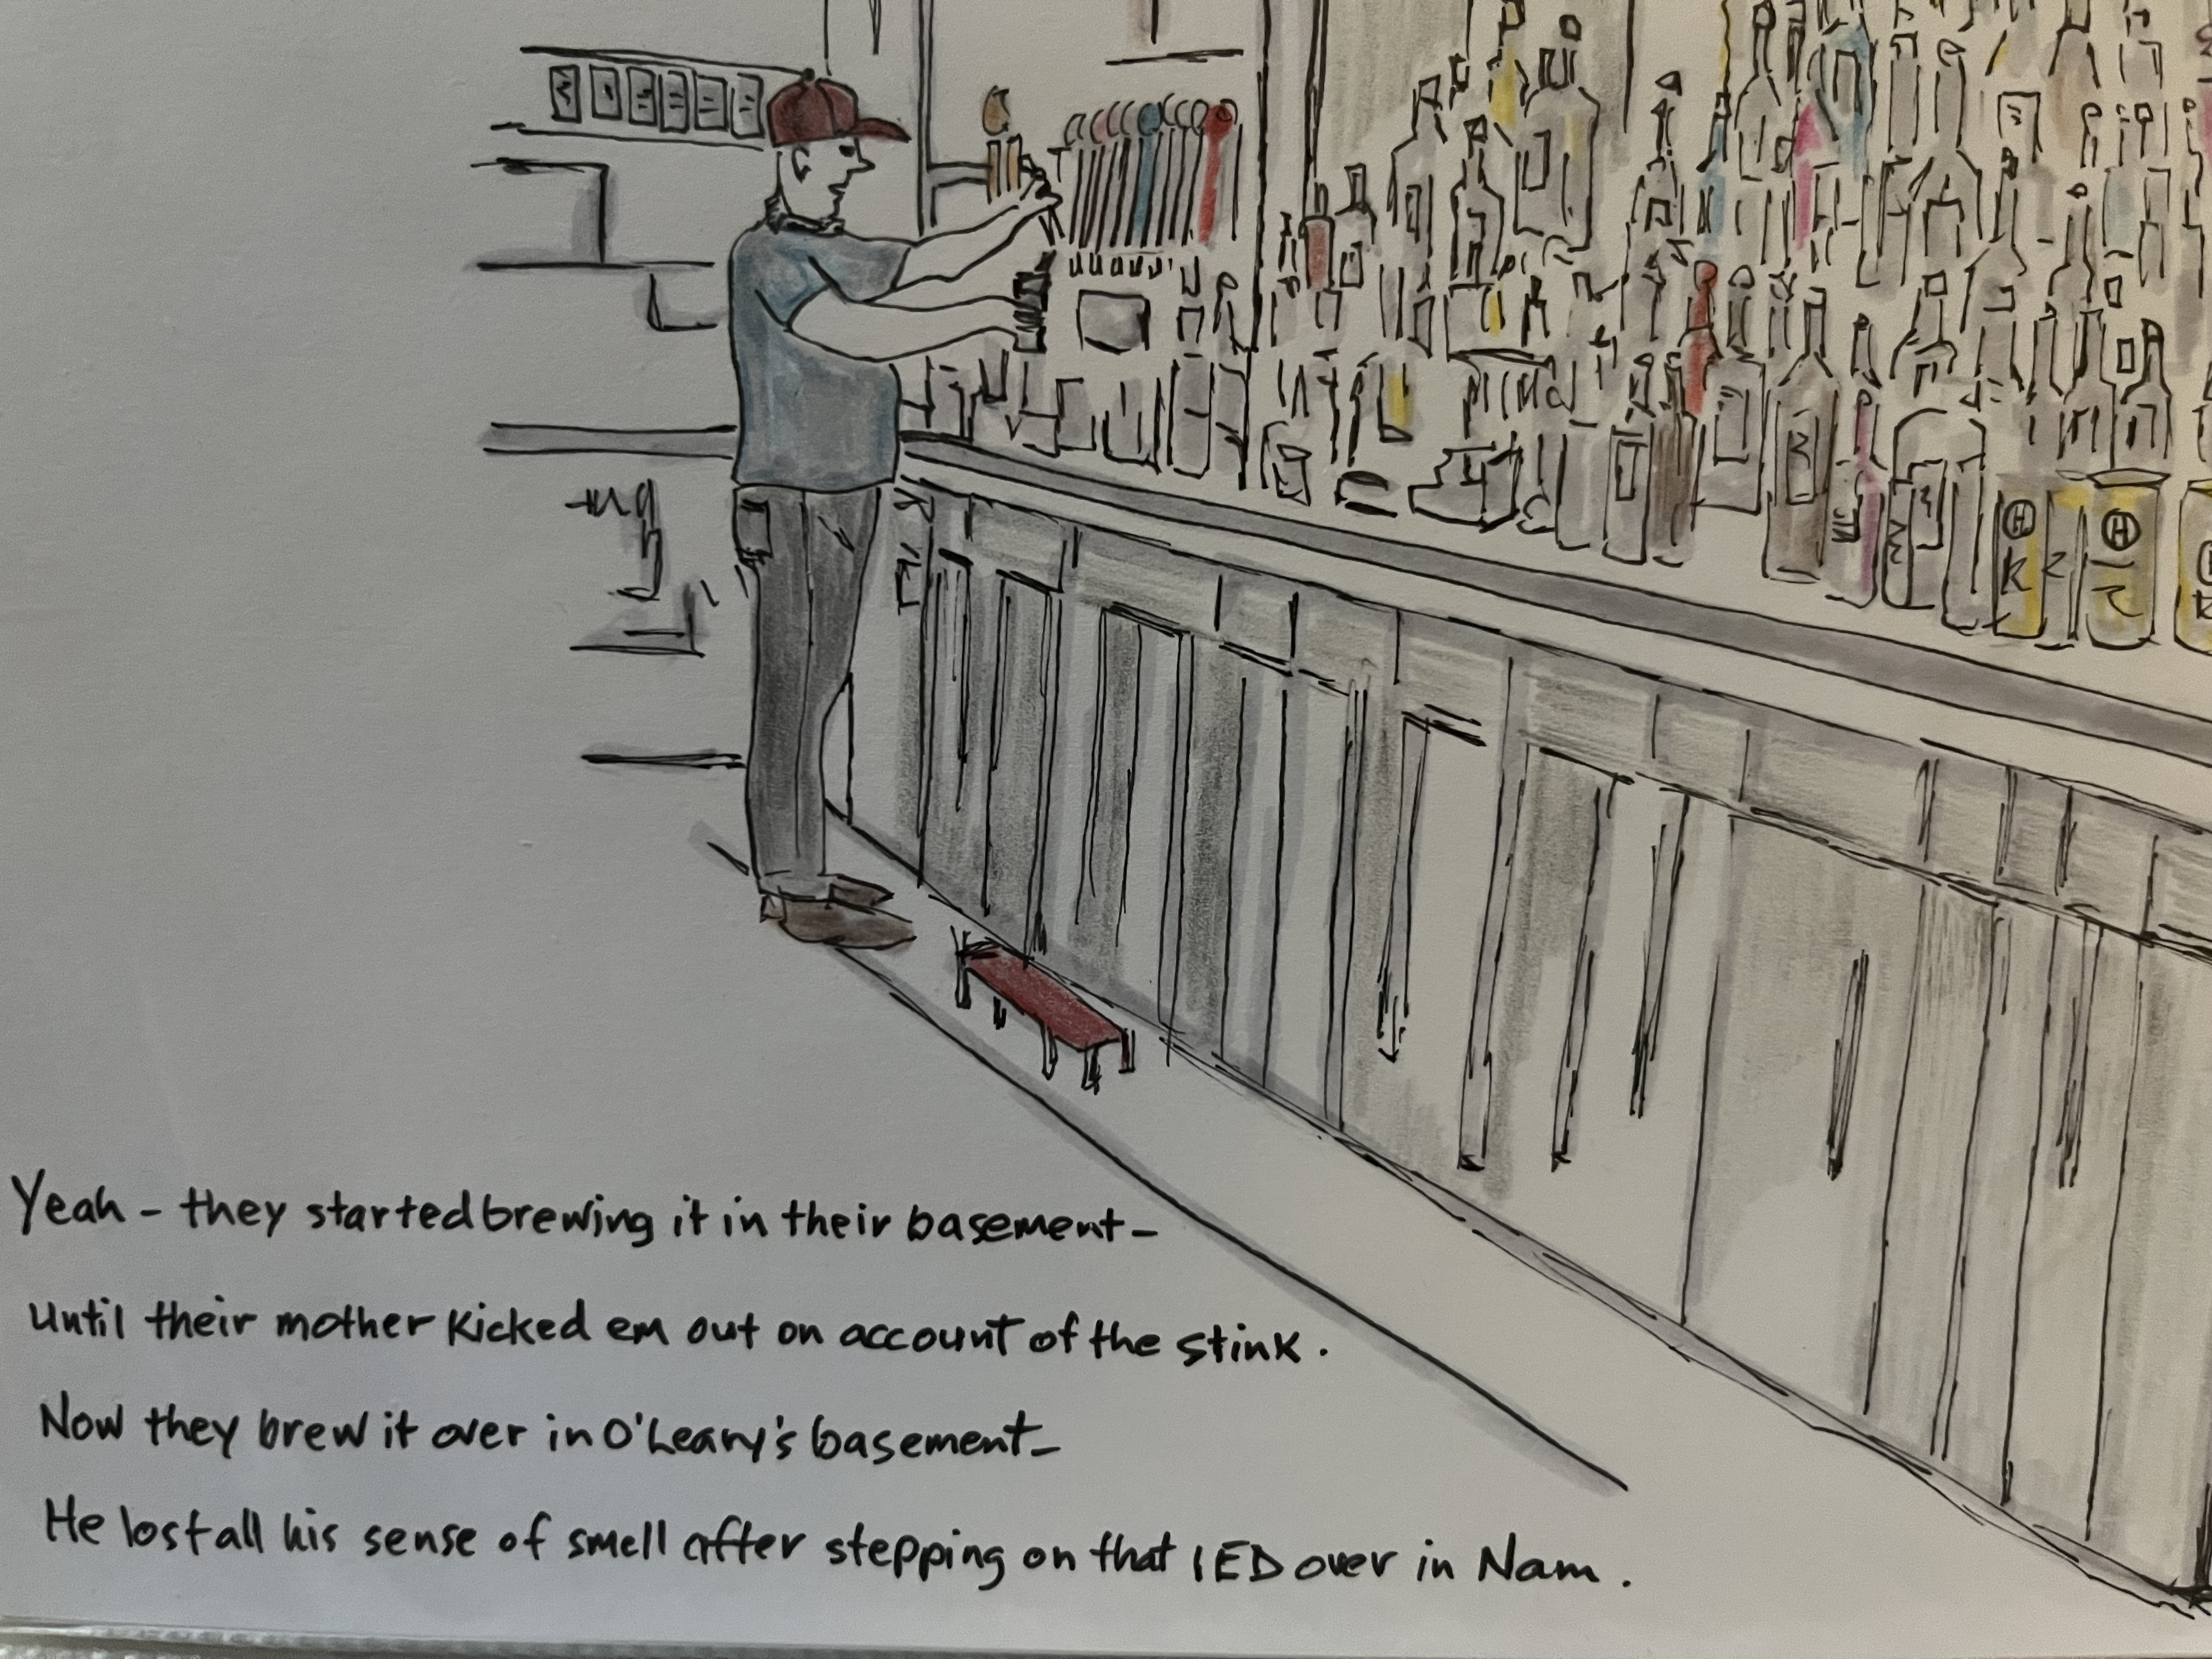 Yeah - they started brewing it in their basement -
Until their mother kicked em out on account of the stink.
Now they brew it over in O'Leary's basement -
He lost all his sense of smell after stepping on that IED over in Nam.